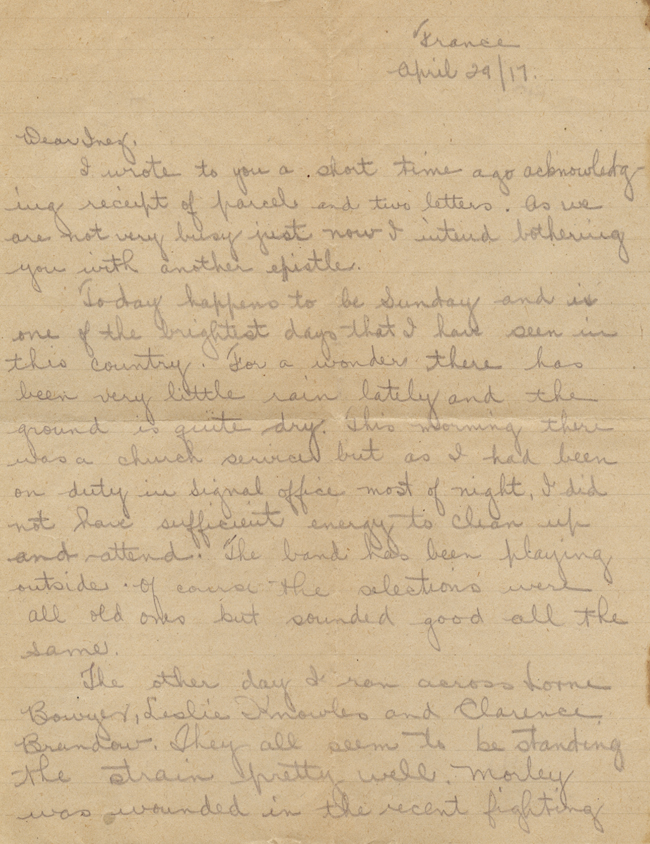 France
April 29/17.
Dear Inez,
I wrote to you a short time ago acknowledg-
ing receipt of parcel and two letters. As we
are not very busy just now I intend bothering
you with another epistle.
To day happens to be Sunday and is
one of the brightest days that I have seen in
this country. For a wonder there has
been very little rain lately and the
ground is quite dry. This morning there
was a church service but as I had been
on duty in signal office most of night, I did
not have sufficient energy to clean up
and attend. The band has been playing
outside. Of course the selections were
all old ones but sounded good all the
same.
The other day I ran across Lorne
Bowyer, Leslie Knowles and Clarence
Brandow. They all seem to be standing
the strain pretty well. Morley
was wounded in the recent fighting